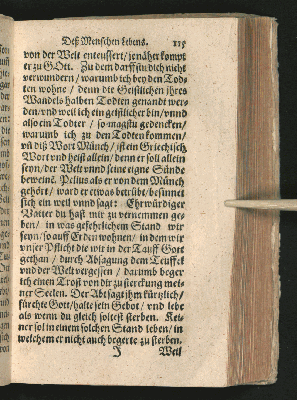 Deß Menschen Lebens. 115
von der Welt enteussert / je näher kompt
er zu GOtt. Zu dem darffstu dich nicht
verwundern / warumb ich bey den Tod-
ten wohne / denn die Geistlichen ihres
Wandels halben Todten genandt wer-
den / vnd weil ich ein geistlicher bin / vnnd
also ein Todter / so magstu gedencken /
warumb ich zu den Todten kommen /
vñ diß Wort Münch / ist ein Griechisch
Wort vnd heist allein / denn er soll allein
seyn / der Welt vnnd seine eigne Sünde
beweinē. Pelius als er von dem Münch
gehört / ward er etwas betrübt / besinnet
sich ein weil vnnd sagt: Ehrwürdiger
Vatter du hast mir zu vernemmen ge-
ben / in was gefehrlichem Stand wir
seyn / so auff Erden wohnen / in dem wir
vnser Pflicht die wir in der Tauff Gott
gethan / durch Absagung dem Teuffel
vnd der Welt vergessen / darumb beger
ich einen Trost von dir zu sterckung mei-
ner Seelen. Der Abt sagt ihm kürtzlich /
fürchte Gott / halte sein Gebot / vnd lebe
als wenn du gleich soltest sterben. Kei-
ner sol in einem solchen Stand leben / in
welchem er nicht auch begerte zu sterben.
J Weil